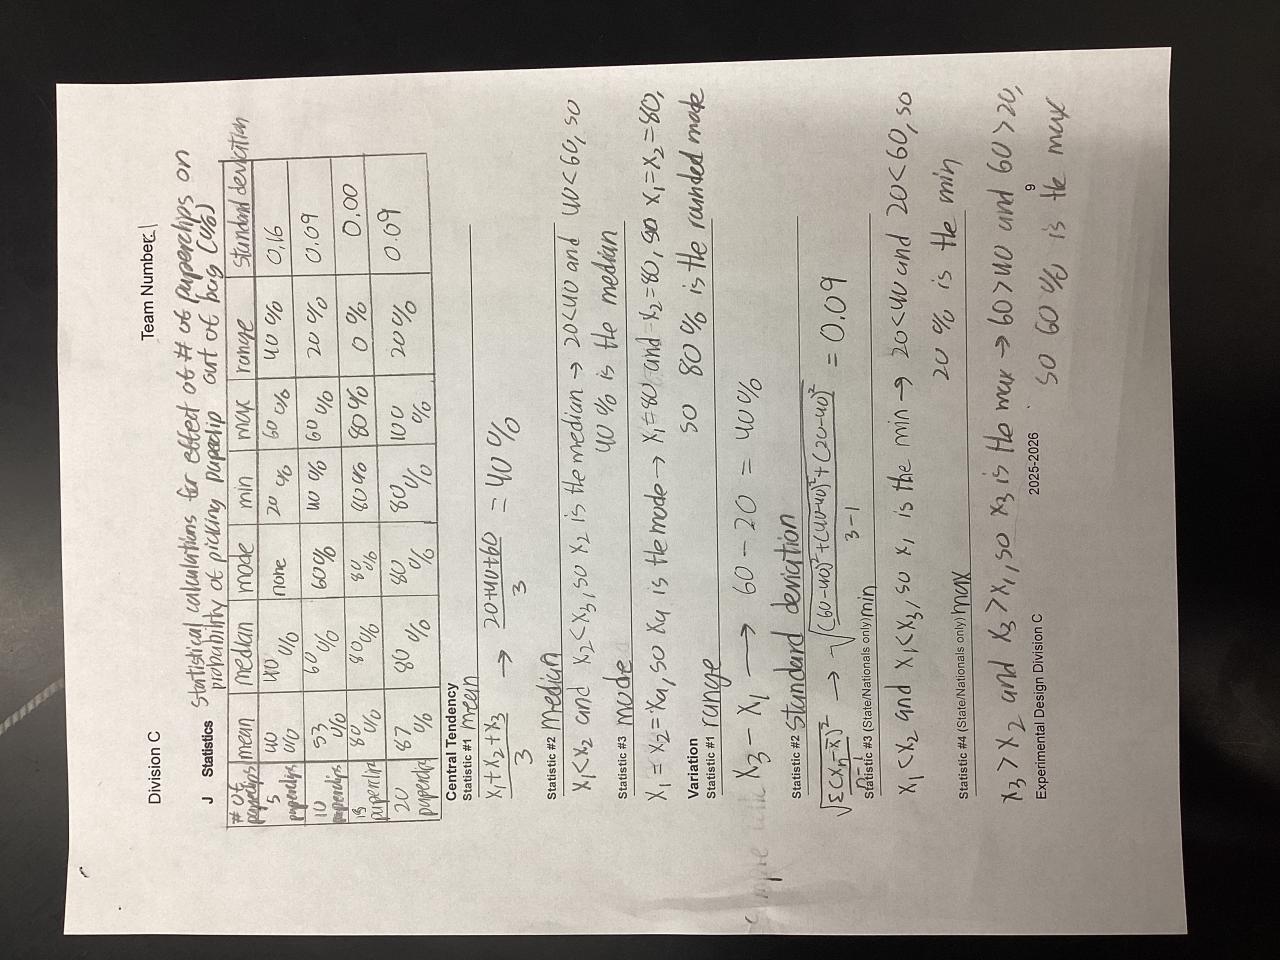 Division C
Team Number:
J Statistics
Statistical calculations for effect of # of paperclips on
probability of picking paperclip out of bag (%)
# of paperclips mean median mode min max range standard deviation
5 paperclips 40 % 40 % none 20 % 60 % 40 % 0.16
10 paperclips 53 % 60 % 60% 40 % 60 % 20 % 0.09
paperclips 80 % 80% 80 % 80 % 80 % 0 % 0.00
20 paperclips 87 % 80 % 80 % 80 % 100 % 20 % 0.09
Central Tendency
Statistic #1 mean
X₁+X₂+X₃ / 3 → 20+40+60 / 3 = 40 %
Statistic #2 median
X₁<X₂ and X₂<X₃, so X₂ is the median → 20<40 and 40<60, so
40 % is the median
Statistic #3 mode
X₁=X₂=X₄, so X₄ is the mode → X₁=80 and X₂=80, so X₁=X₂=80,
so 80 % is the rounded mode
Variation
Statistic #1 range
X₃ - X₁ → 60 - 20 = 40 %
Statistic #2 standard deviation
√Σ(Xₙ-x̄)² / n-1 → √(60-40)²+(40-40)²+(20-40)² / 3-1 = 0.09
Statistic #3 (State/Nationals only) min
X₁<X₂ and X₁<X₃, so X₁ is the min → 20<40 and 20<60, so
20 % is the min
Statistic #4 (State/Nationals only) max
X₃>X₂ and X₃>X₁, so X₃ is the max → 60>40 and 60>20,
so 60 % is the max
Experimental Design Division C
2025-2026
9